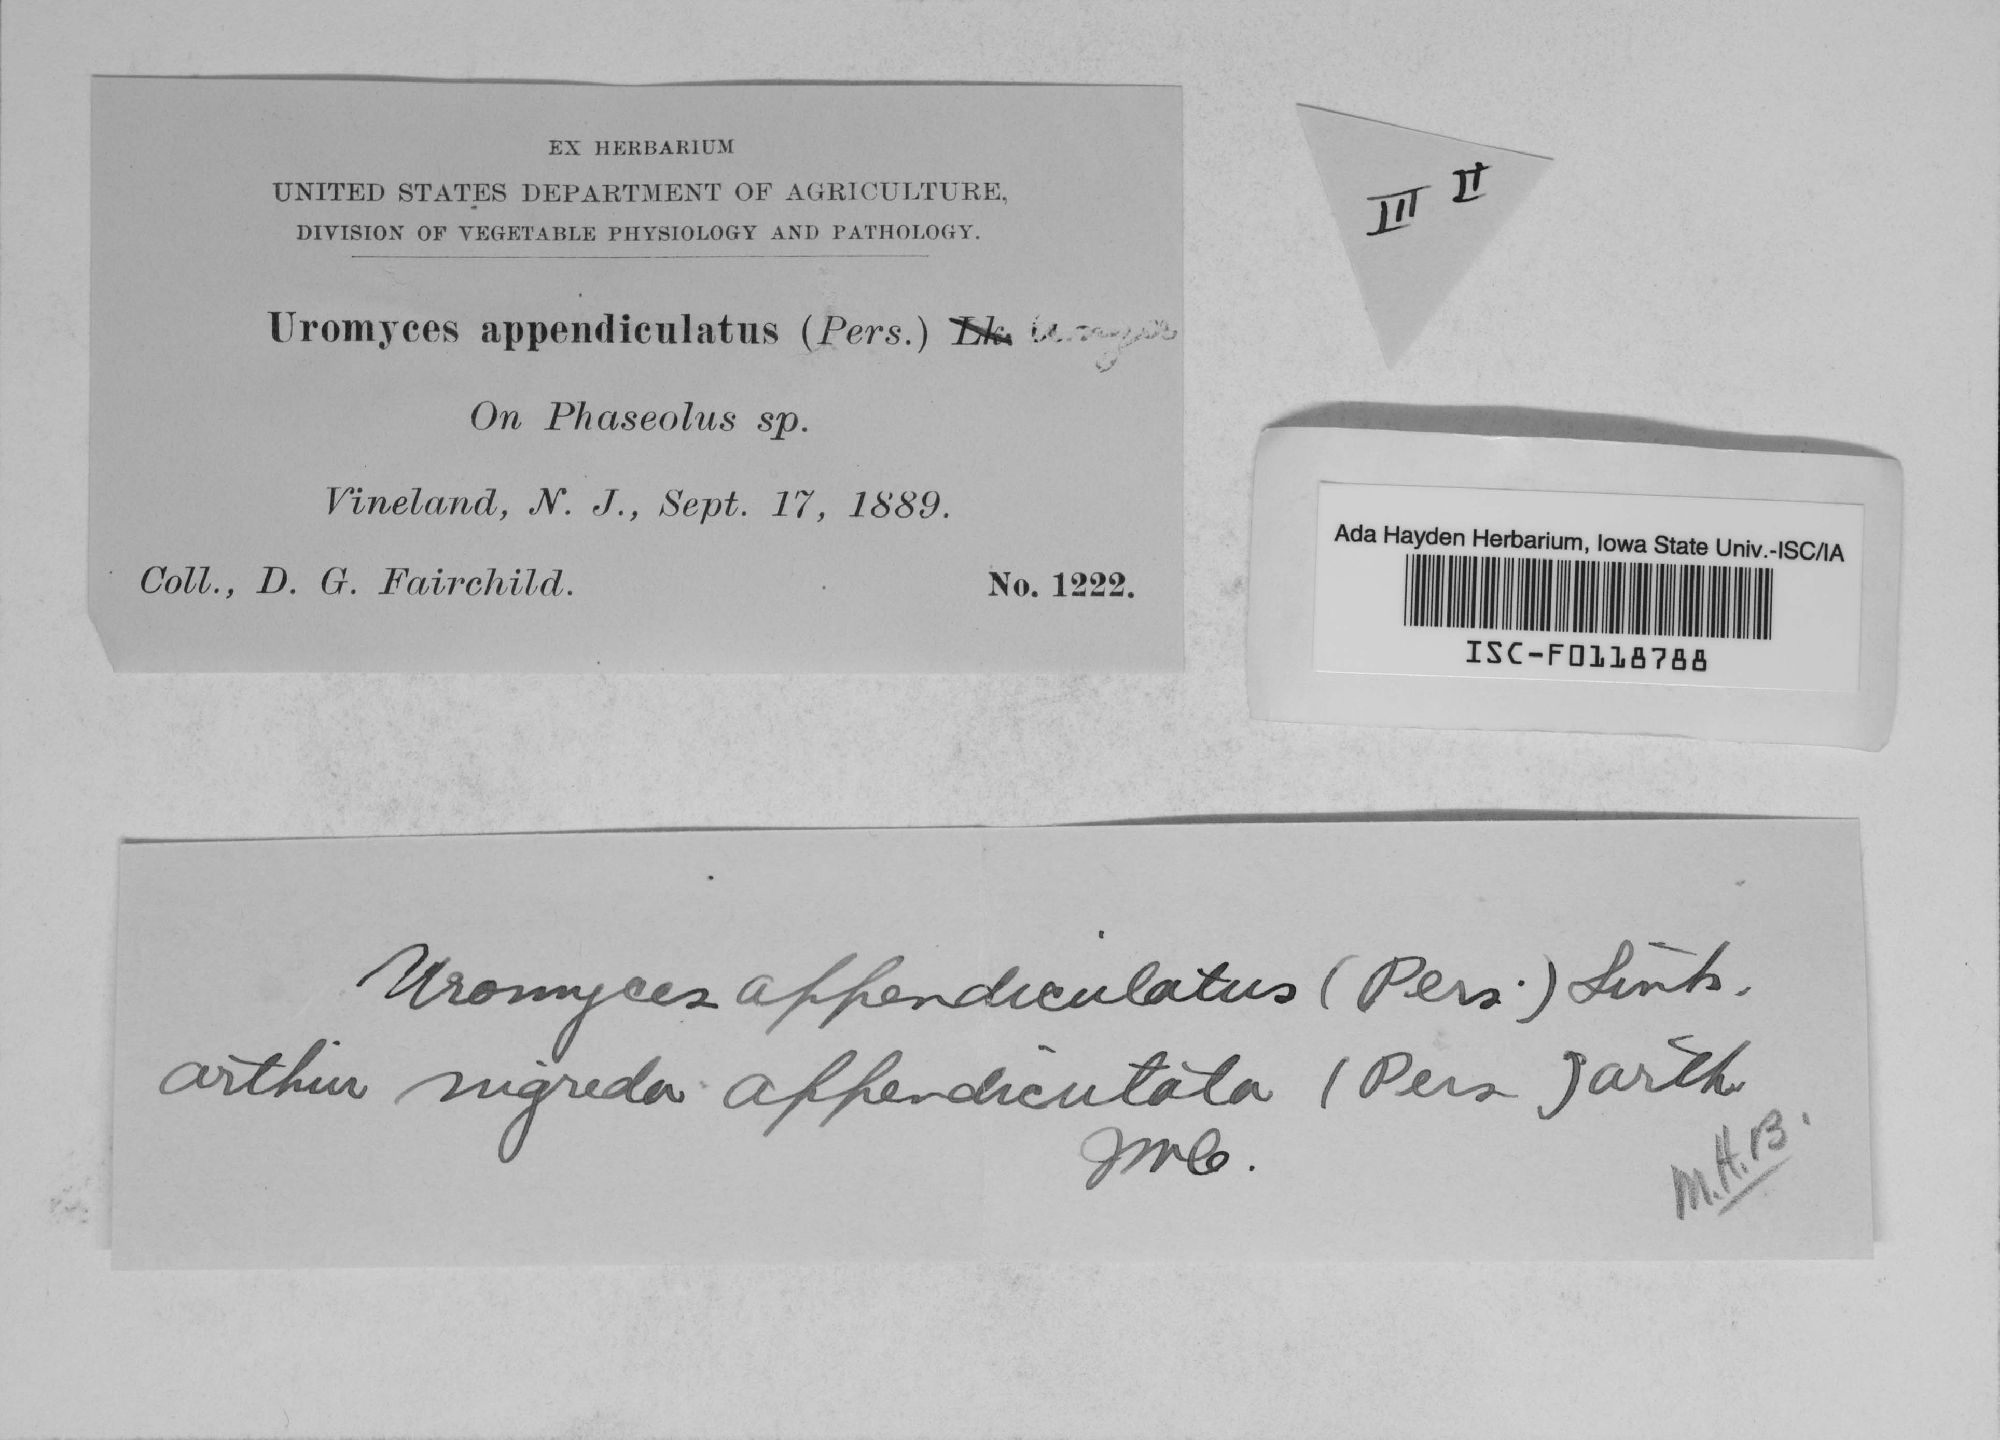 EX HERBARIUM
UNITED STATES DEPARTMENT OF AGRICULTURE,
DIVISION OF VEGETABLE PHYSIOLOGY AND PATHOLOGY.
Uromyces appendiculatus (Pers.) Lk.
On Phaseolus sp.
Vineland, N. J., Sept. 17, 1889.
Coll., D. G. Fairchild.
No. 1222.
III II
Ada Hayden Herbarium, Iowa State Univ.-ISC/IA
ISC-F0118788
Uromyces appendiculatus (Pers.) Link.
arthur nigreda appendiculata (Pers) arth
M.H.B.